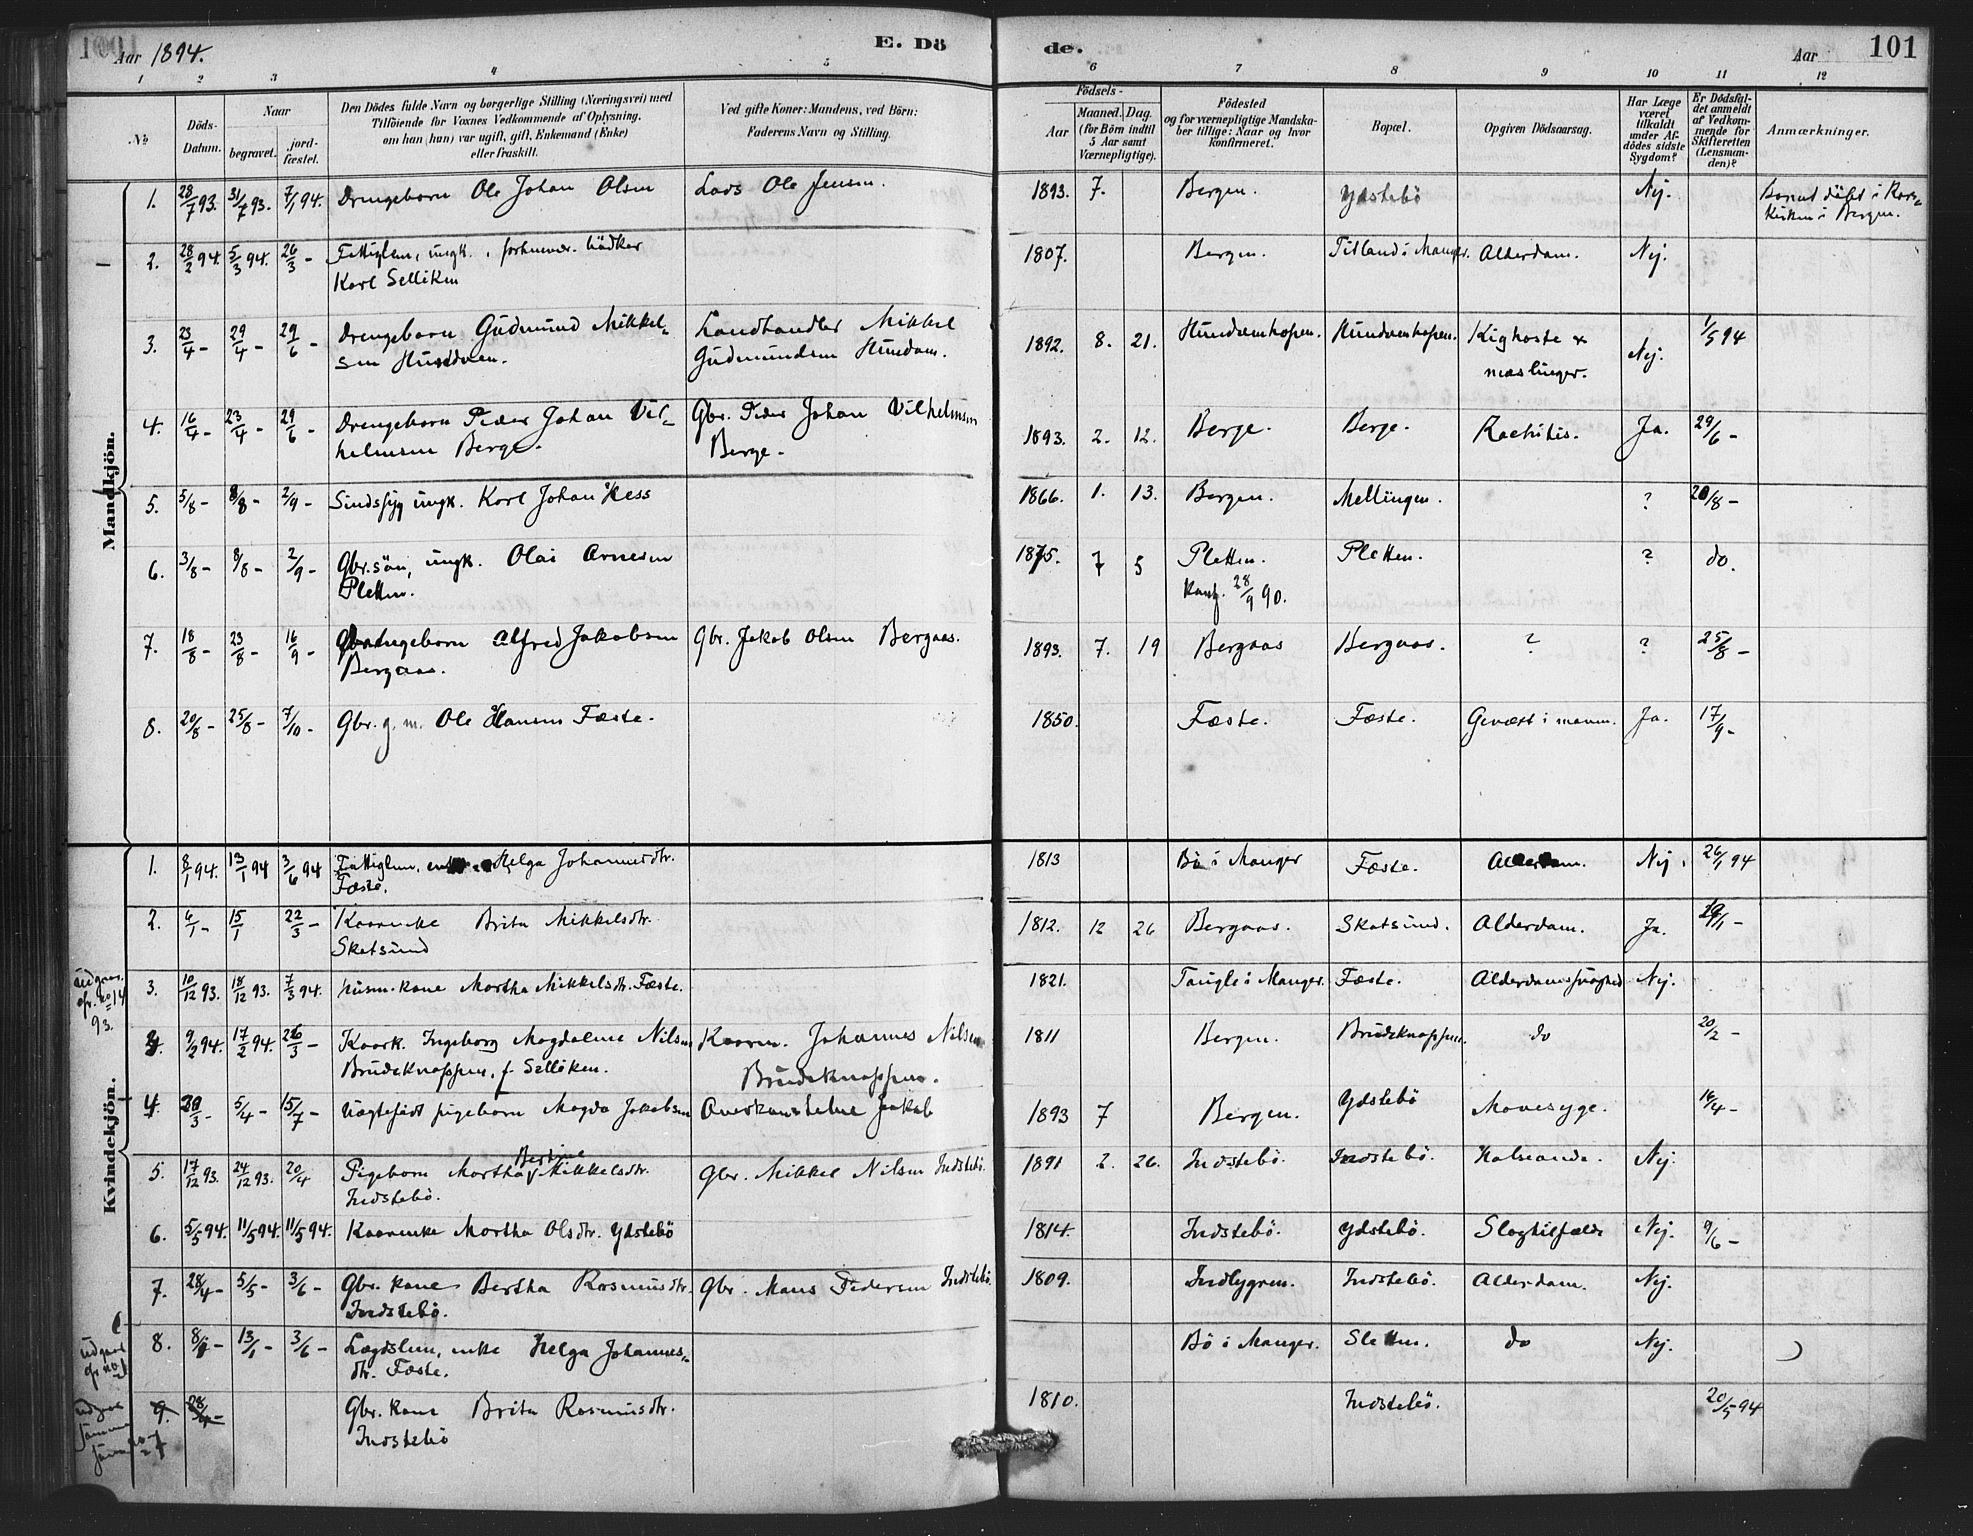 Aar 1894.
E. Dö
de.
Aar
101
1 2 3 4 5 6 7 8 9 10 11 12
No.
Döds-Datum.
Naar
begravet.
jord-fæstet.
Den Dödes fulde Navn og borgerlige Stilling (Næringsvei) med
Tilföiende for Voxnes Vedkommende af Oplysning,
om han (hun) var ugift, gift, Enkemand (Enke)
eller fraskilt.
Ved gifte Koner: Mandens, ved Börn:
Faderens Navn og Stilling.
Födsels-
Aar
Maaned. Dag.
(for Börn indtil
5 Aar samt
Værnepligtige).
Födested
og for værnepligtige Mandska-
ber tillige: Naar og hvor
konfirmeret.
Bopæl.
Opgiven Dödsaarsag.
Har Læge
været
tilkaldt
under Af-
dödes sidste
Sygdom?
Er Dödsfal-
det anmeldt
af Vedkom-
mende for
Skifteretten
(Lensman-
den)?
Anmærkninger.
Mandkjön.
1. 28/7 93. 31/7 93. 7/1 94. Drengebarn Ole Johan Olsen Lods Ole Jensen. 1893. 7. Bergen. Ydstebö Nej. döbt i Kors-
kirken i Bergen.
2. 28/2 94. 5/3 94. 26/3 - Fattiglem, ungk., bödker
Karl Selliken 1807. Bergen. Titland i Manger. Alderdom. Nej.
3. 23/4 - 29/4 - 29/6 - Drengebarn Gudmund Mikkel-
sen Landhandler Mikkel
Gudmundsen Hundven. 1892. 8. 21. Hundvenhopen. Hundvenhopen. Kighoste &
mæslinger. Nej. 1/5 94
4. 16/4 - 23/4 - 29/6 - Drengebarn Peder Johan Vil-
helmsen Berge. Gbr. Peder Johan Vilhelmsen
Berge. 1893. 2. 12. Berge. Berge. Rachitis. Ja. 29/6 -
5. 5/8 - 8/8 - 2/9 - Sindssyg ungk. Karl Johan Hess 1866. 1. 13. Bergen. Mellingen. ? 20/8 -
6. 3/8 - 8/8 - 2/9 - Gbr.sön, ungk. Olai Arnesen
Pletten. 1875. 7 5 Pletten.
Konf. 28/9 90. Pletten. ? do.
7. 18/8 - 23/8 - 16/9 - Drengebarn Alfred Jakobsen
Bergaas. Gbr. Jakob Olsen Bergaas. 1893. 7. 19 Bergaas Bergaas. ? ? 25/8 -
8. 20/8 - 25/8 - 7/10 - Gbr. g. m. Ole Hansen Fæste. 1850. Fæste. Fæste. Gevæxt i maven. Ja. 17/9 -
Kvindekjön.
1. 8/1 94. 13/1 94 3/6 94 Fattiglem, enke Helga Johannesdtr.
Fæste. 1813 Bö i Manger Fæste. Alderdom. Nej. 26/1 94
2. 6/1 - 15/1 22/3 - Kaarenke Brita Mikkelsdtr.
Skatsund 1812. 12 26 Bergaas. Skatsund. Alderdom. Ja. 19/1 -
udgaar.
cfr. no 14
93.
3. 10/12 93. 18/12 93. 7/3 94. husm. kone Martha Mikkelsdtr. Fæste. 1821. Tougle i Manger. Fæste. Alderdomssvaghed Nej.
9/2 94. 17/2 94. 26/3 - Kaark. Ingeborg Magdalene Nilsen
Brudeknappen, f. Selliken. Kaarm. Johannes Nilsen
Brudeknappen. 1811 Bergen. Brudeknappen. do 20/2 -
4. 5/4 - 15/7 - Uægtefödt pigebarn Magda Jakobsen Jakob 1893 7 Bergen. Ydstebö Mavesyge. 14/4 -
5. 17/12 93. 24/12 93. 20/4 Pigebarn Martha Bertine Mikkelsdtr.
Indstebö. Gbr. Mikkel Nilsen Indstebö. 1891 2. 26. Indstebö. Indstebö. Halsonde. Nej.
6. 5/5 94. 11/5 94. 11/5 94. Kaarenke Martha Olsdtr. Ydstebö 1814. Indstebö. Ydstebö. Slagtilfælde Nej. 9/6 -
7. 28/4 - 5/5 - 3/6 - Gbr. kone Bertha Rasmusdtr.
Indstebö. Gbr. Mons Pedersen Indstebö. 1809. Indstebö. Alderdom. Nej.
udgaar
cfr no 1
8. 8/1 - 13/1 - 3/6 - Lægdslem, enke Helga Johannes-
dtr. Fæste. Bö i Manger. Sletten. do Nej.
9. 28/4 - Gbr. kone Brita Rasmusdtr.
Indstebö 1810. Indstebö. 20/5 94